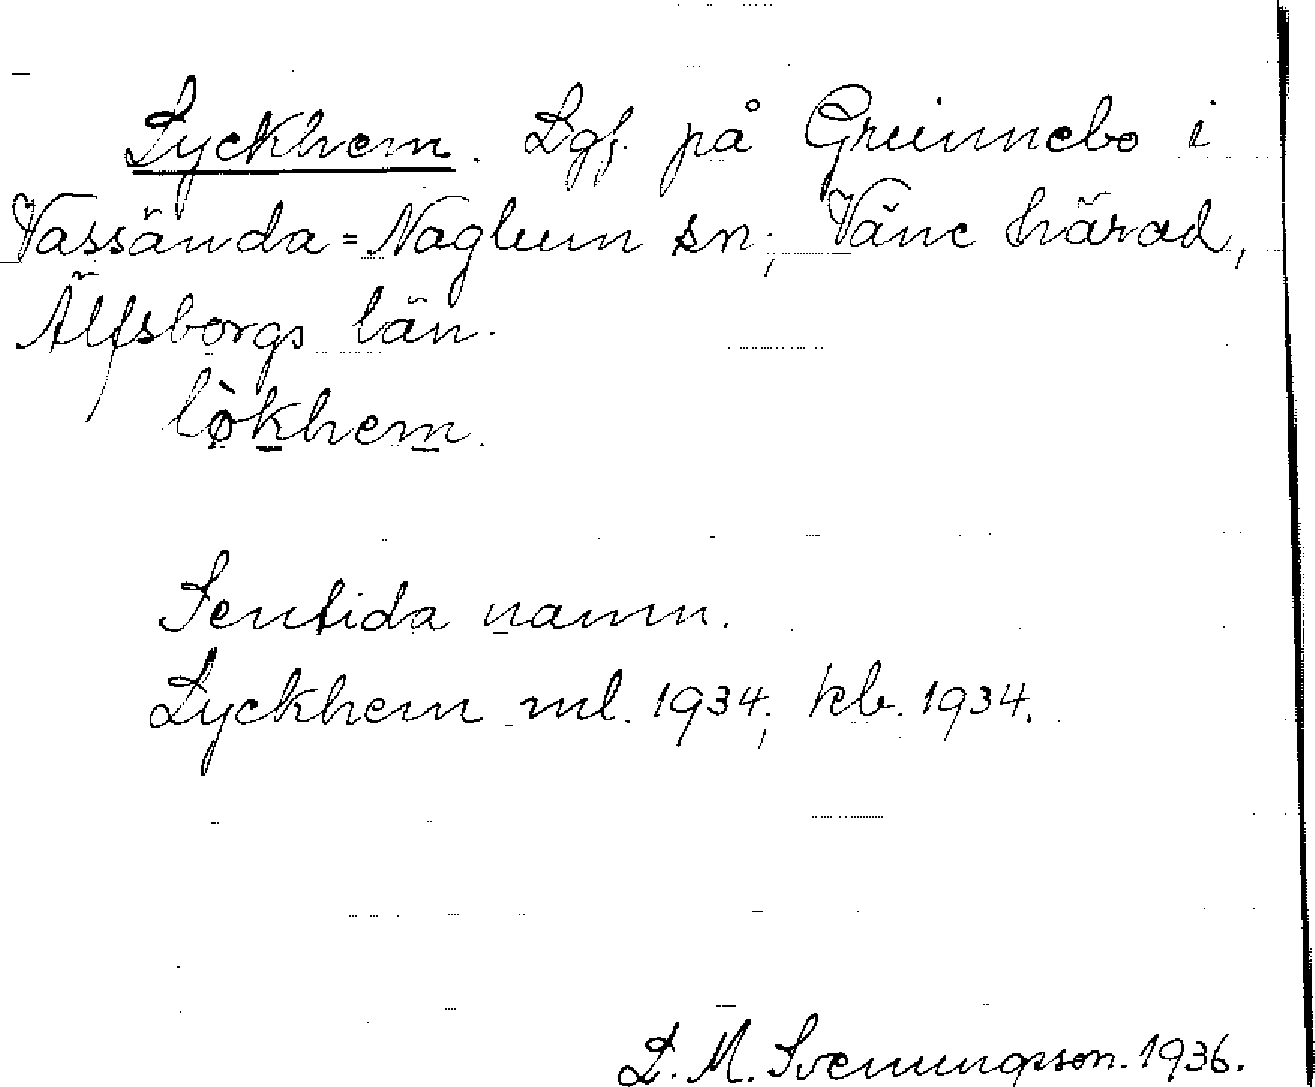 Lyckhem. Lgf. på Grunnebo i
Vassända=Naglum sn; Väne härad,
Älfsborgs län.
lø̀khem.
Sentida namn.
Lyckhem ml. 1934; kb. 1934.
L. M. Svenungsson. 1936.